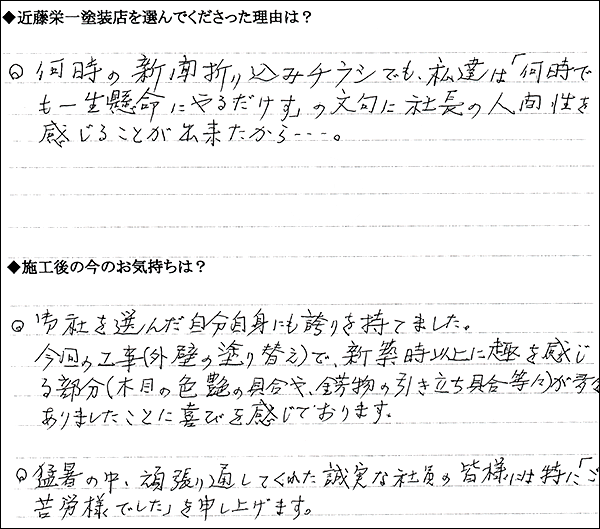 ◆近藤栄一塗装店を選んでくださった理由は？
○何時の新聞折り込みチラシでも、私達は「何時で
も一生懸命にやるだけす」の文句に社長の人間性を
感じることが出来たから---。
◆施工後の今のお気持ちは？
○貴社を選んだ自分自身にも誇りを持てました。
今回の工事(外壁の塗り替え)で、新築時以上に趣を感じ
る部分(木目の色艶の具合や、鋳物の引き立ち具合等々)が
ありましたことに喜びを感じております。
○猛暑の中、頑張り通してくれた誠実な社員の皆様には特に「ご
苦労様でした」を申し上げます。